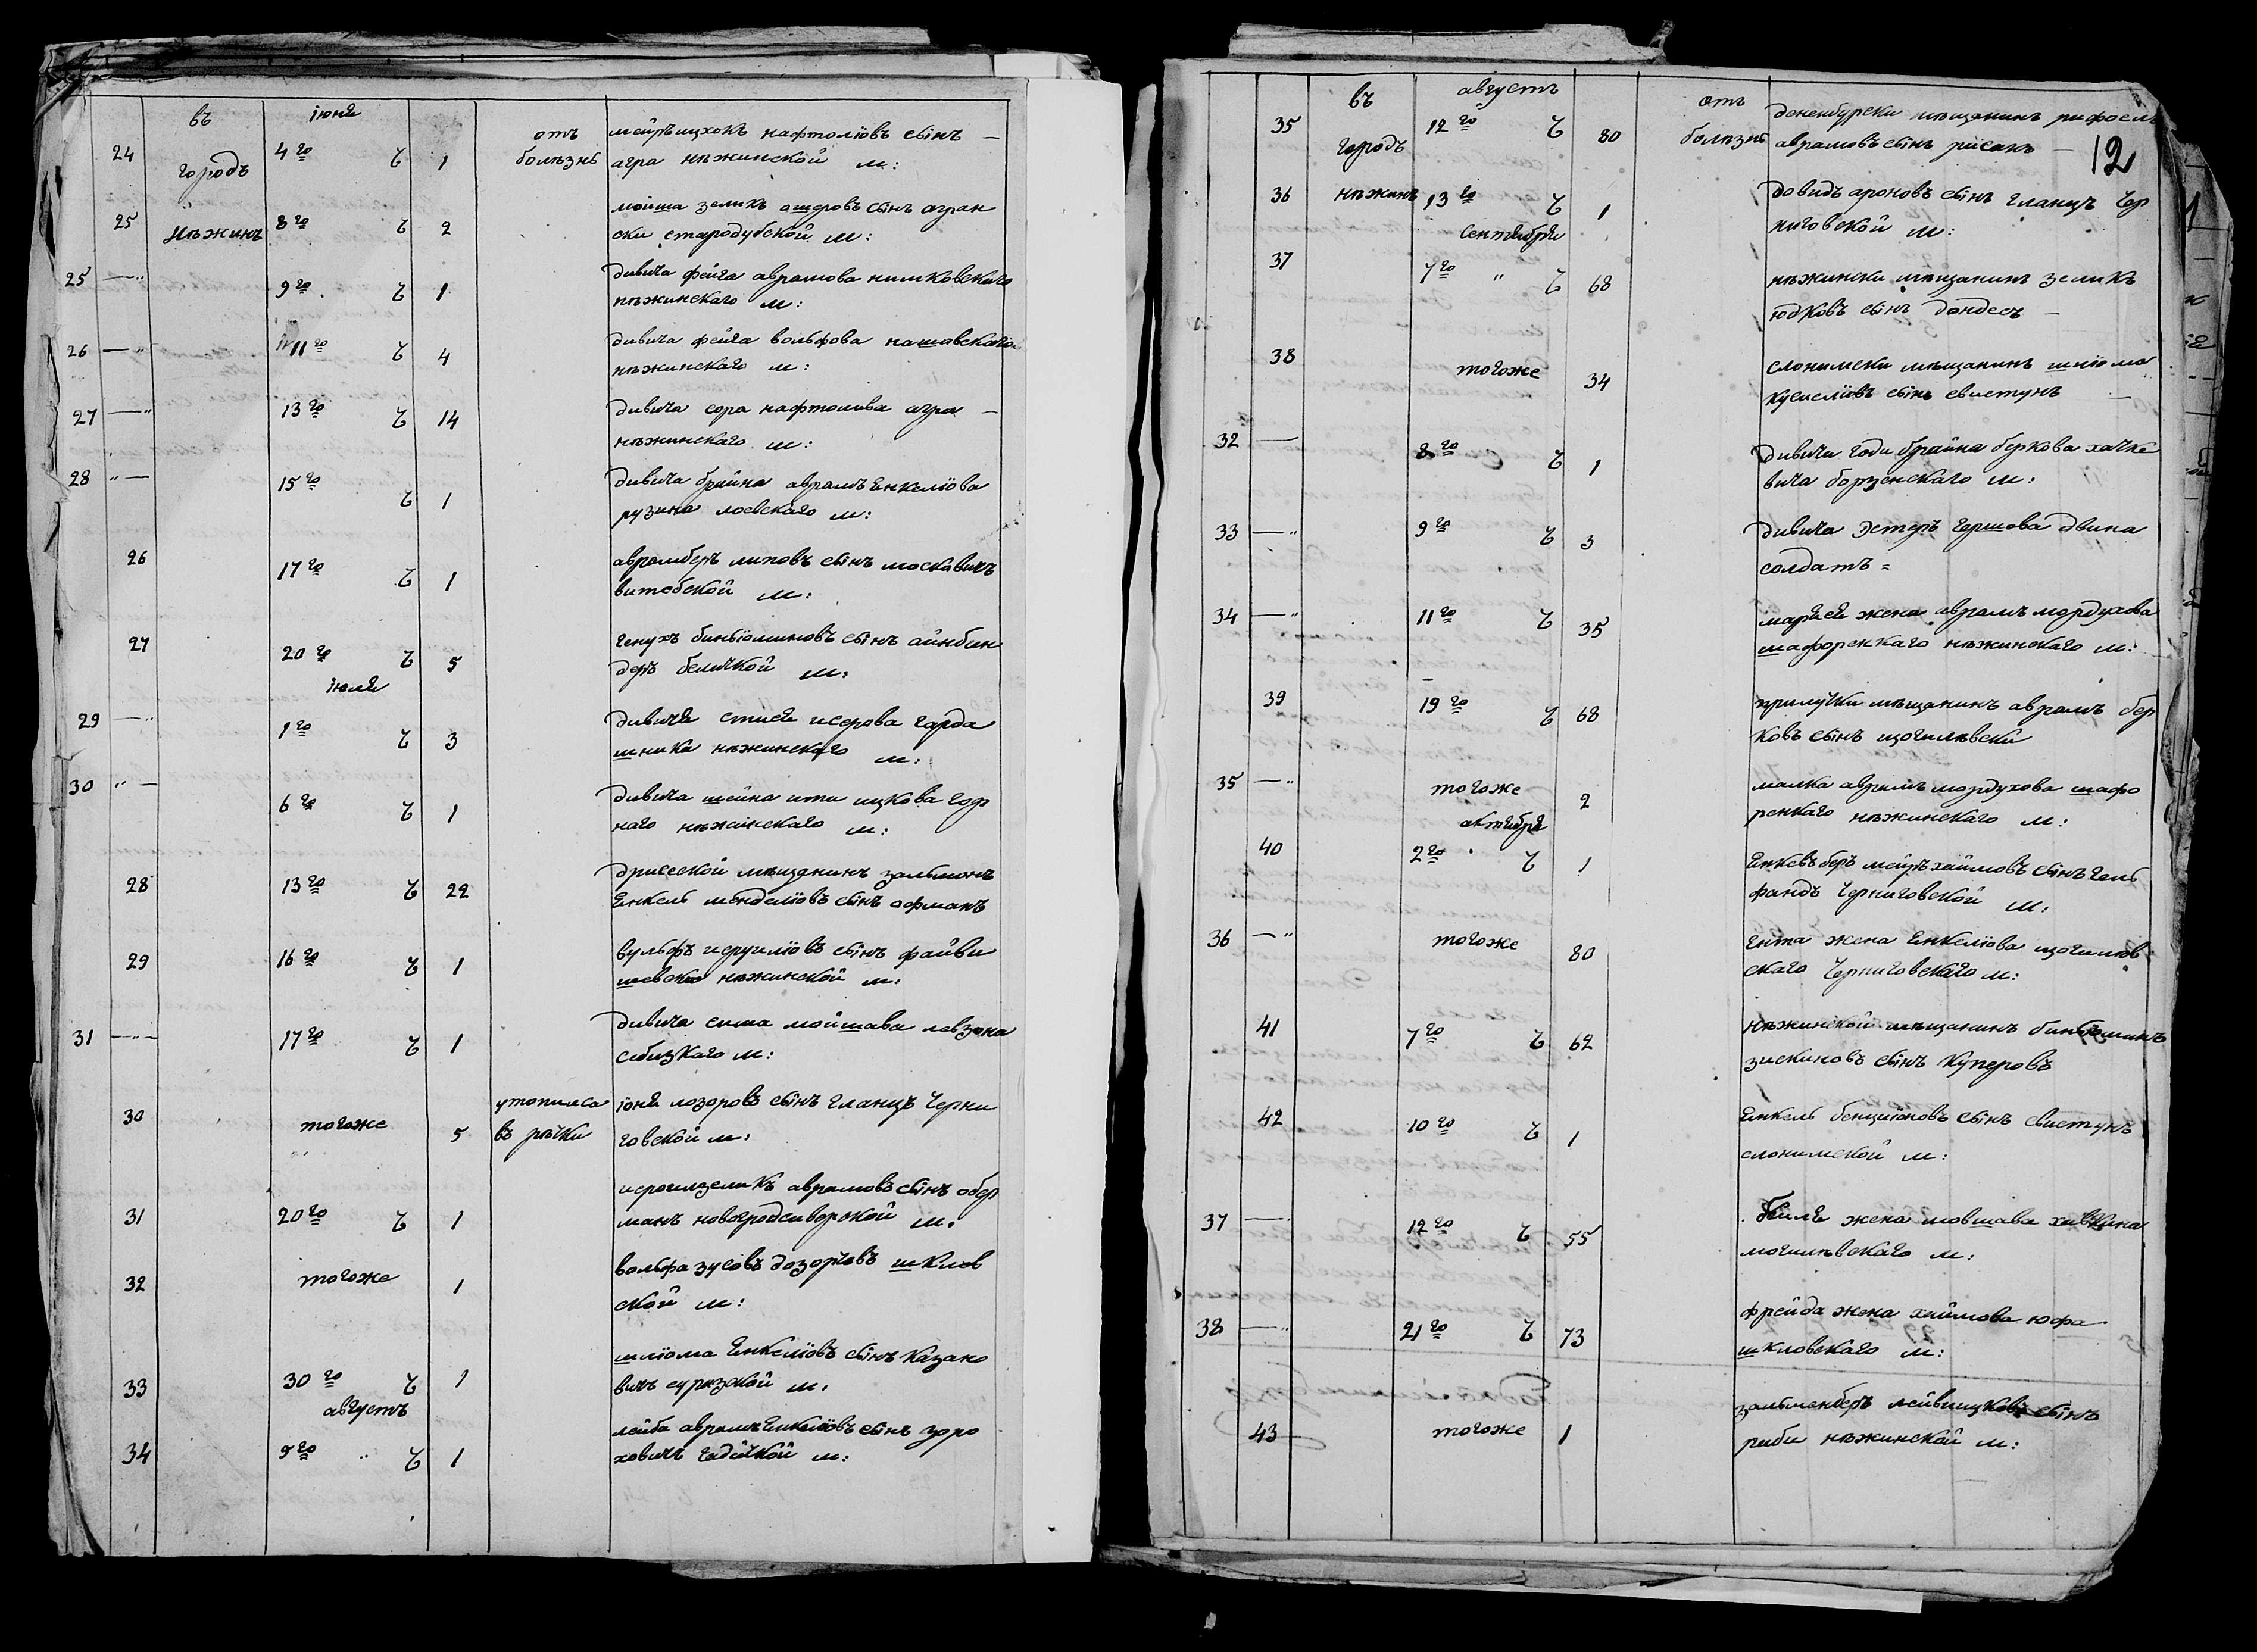 въ іюня
24 городъ 4го 1 отъ болѣзнь мейръ ицхокъ нафтоліовъ сынъ —
агра нѣжинской м:
25 Нѣжинъ 8го 2 мойша зеликъ ашеровъ сынъ агран
ски стародубской м:
25 —" 9го 1 дивича фейга аврамова нимковскаго
нѣжинскаго м:
26 —" 11го 4 дивича фейга вольфова нашовскаго
нѣжинскаго м:
27 —" 13го 14 дивича сора нафтолива агра —
нѣжинскаго м:
28 "— 15го 1 дивича брайна аврамъ Енкеліова
рузина лоевскаго м:
26 17го 1 аврамберъ липовъ сынъ москавичъ
витебской м:
27 20го 5 генухъ биньоминовъ сынъ айнбин
деръ беличкой м:
іюля
29 —" 1го 3 дивичя стися исерова гарда
шника нѣжинскаго м:
30 "— 6го 1 дивича шейна ита ицкова гор
наго нѣжинскаго м:
28 13го 22 дрисской мѣщанинъ зальмонъ
Енкель менделіовъ сынъ офманъ
29 16го 1 вульфъ исруиліовъ сынъ файви
шевски нѣжинской м:
31 —"— 17го 1 дивича сима мойшава левзона
себизкаго м:
30 тогоже 5 утопилса въ рѣчки іоня лозоровъ сынъ гланцъ Черни
говской м:
31 20го 1 исроилзеликъ аврамовъ сынъ обер
манъ новогродсиверской м:
32 тогоже 1 вольфа зусовъ дозорцовъ шклов
ской м:
33 30го 1 шліома Енкеліовъ сынъ Казако
вичъ суражской м:
августъ
34 9го 1 лейба аврамъ Енкеліовъ сынъ зоро
ховичъ гадячкой м:
12
въ августъ
35 городъ 12го 80 отъ болѣзнь мѣщанинъ рафоелъ
аврамовъ сынъ рисакъ —
36 нѣжинъ 13го 1 довидъ ароновъ сынъ гланцъ Чер
ниговской м:
Сентября
37 7го " 68 нѣжински мѣщанинъ зеликъ
юдковъ сынъ дондесъ —
38 тогоже 34 слонимски мѣщанинъ шліома
кусиеліовъ сынъ свистунъ —
32 — 8го 1 дивича года брайна беркова хачке
вича борзенскаго м:
33 —" 9го 3 дивича Эстеръ гершова двина
солдатъ =
34 —" 11го 35 марясѣ жена аврамъ мордухова
шафоренкаго нѣжинскаго м:
39 19го 68 прилучки мѣщанинъ аврамъ бер
ковъ сынъ щогилѣвски
35 —" тогоже 2 малка аврамъ мордухова шафо
ренкаго нѣжинскаго м:
октября
40 2го 1 Енкевъ беръ мейръ хаймовъ сынъ гель
фандъ Черниговской м:
36 —" тогоже 80 гита жена Енкеліова щогилюв
скаго Черниговскаго м:
41 7го 62 Нѣжинской мѣщанинъ биньоминъ
зискиновъ сынъ Куперовъ
42 10го 1 Енкель бенціоновъ сынъ Свистунъ
слонимской м:
37 —" 12го 55 бейля жена мовшава хавкина
могилѣвскаго м:
38 —" 21го 73 фрейда жена хаймова юфа —
шкловскаго м:
43 тогоже 1 зальменберъ лейвицковъ сынъ
риби нѣжинской м: